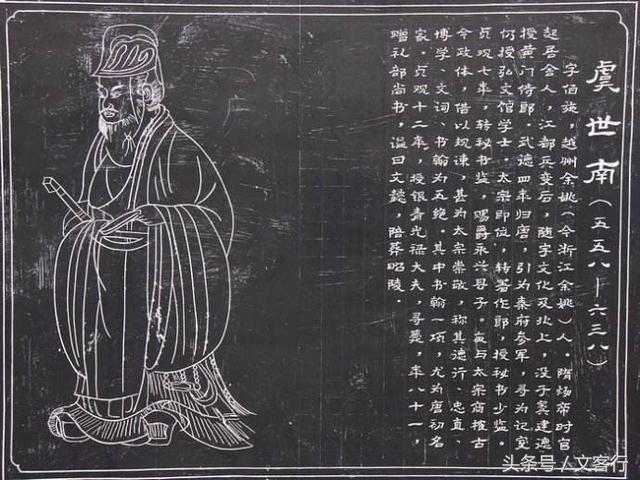 虞世南（五五八—六三八）
字伯施，越州余姚（今浙江余姚）人。隋炀帝时官
起居舍人，江都兵变后，随宇文化及北上，没于窦建德
授黄门侍郎，武德四年归唐，引为秦府参军，寻为记室
仍授弘文馆学士，太宗即位，转著作郎，授秘书少监。
贞观七年，转秘书监，赐爵永兴县子。夜与太宗商榷古
今政体，借以规谏，甚为太宗崇敬，称其德行、忠直、
博学、文词、书翰为五绝。其中书翰一项，尤为唐初名
家。贞观十二年，授银青光禄大夫，寻薨，年八十一，
赠礼部尚书，谥曰文懿，陪葬昭陵。
头条号／文客行